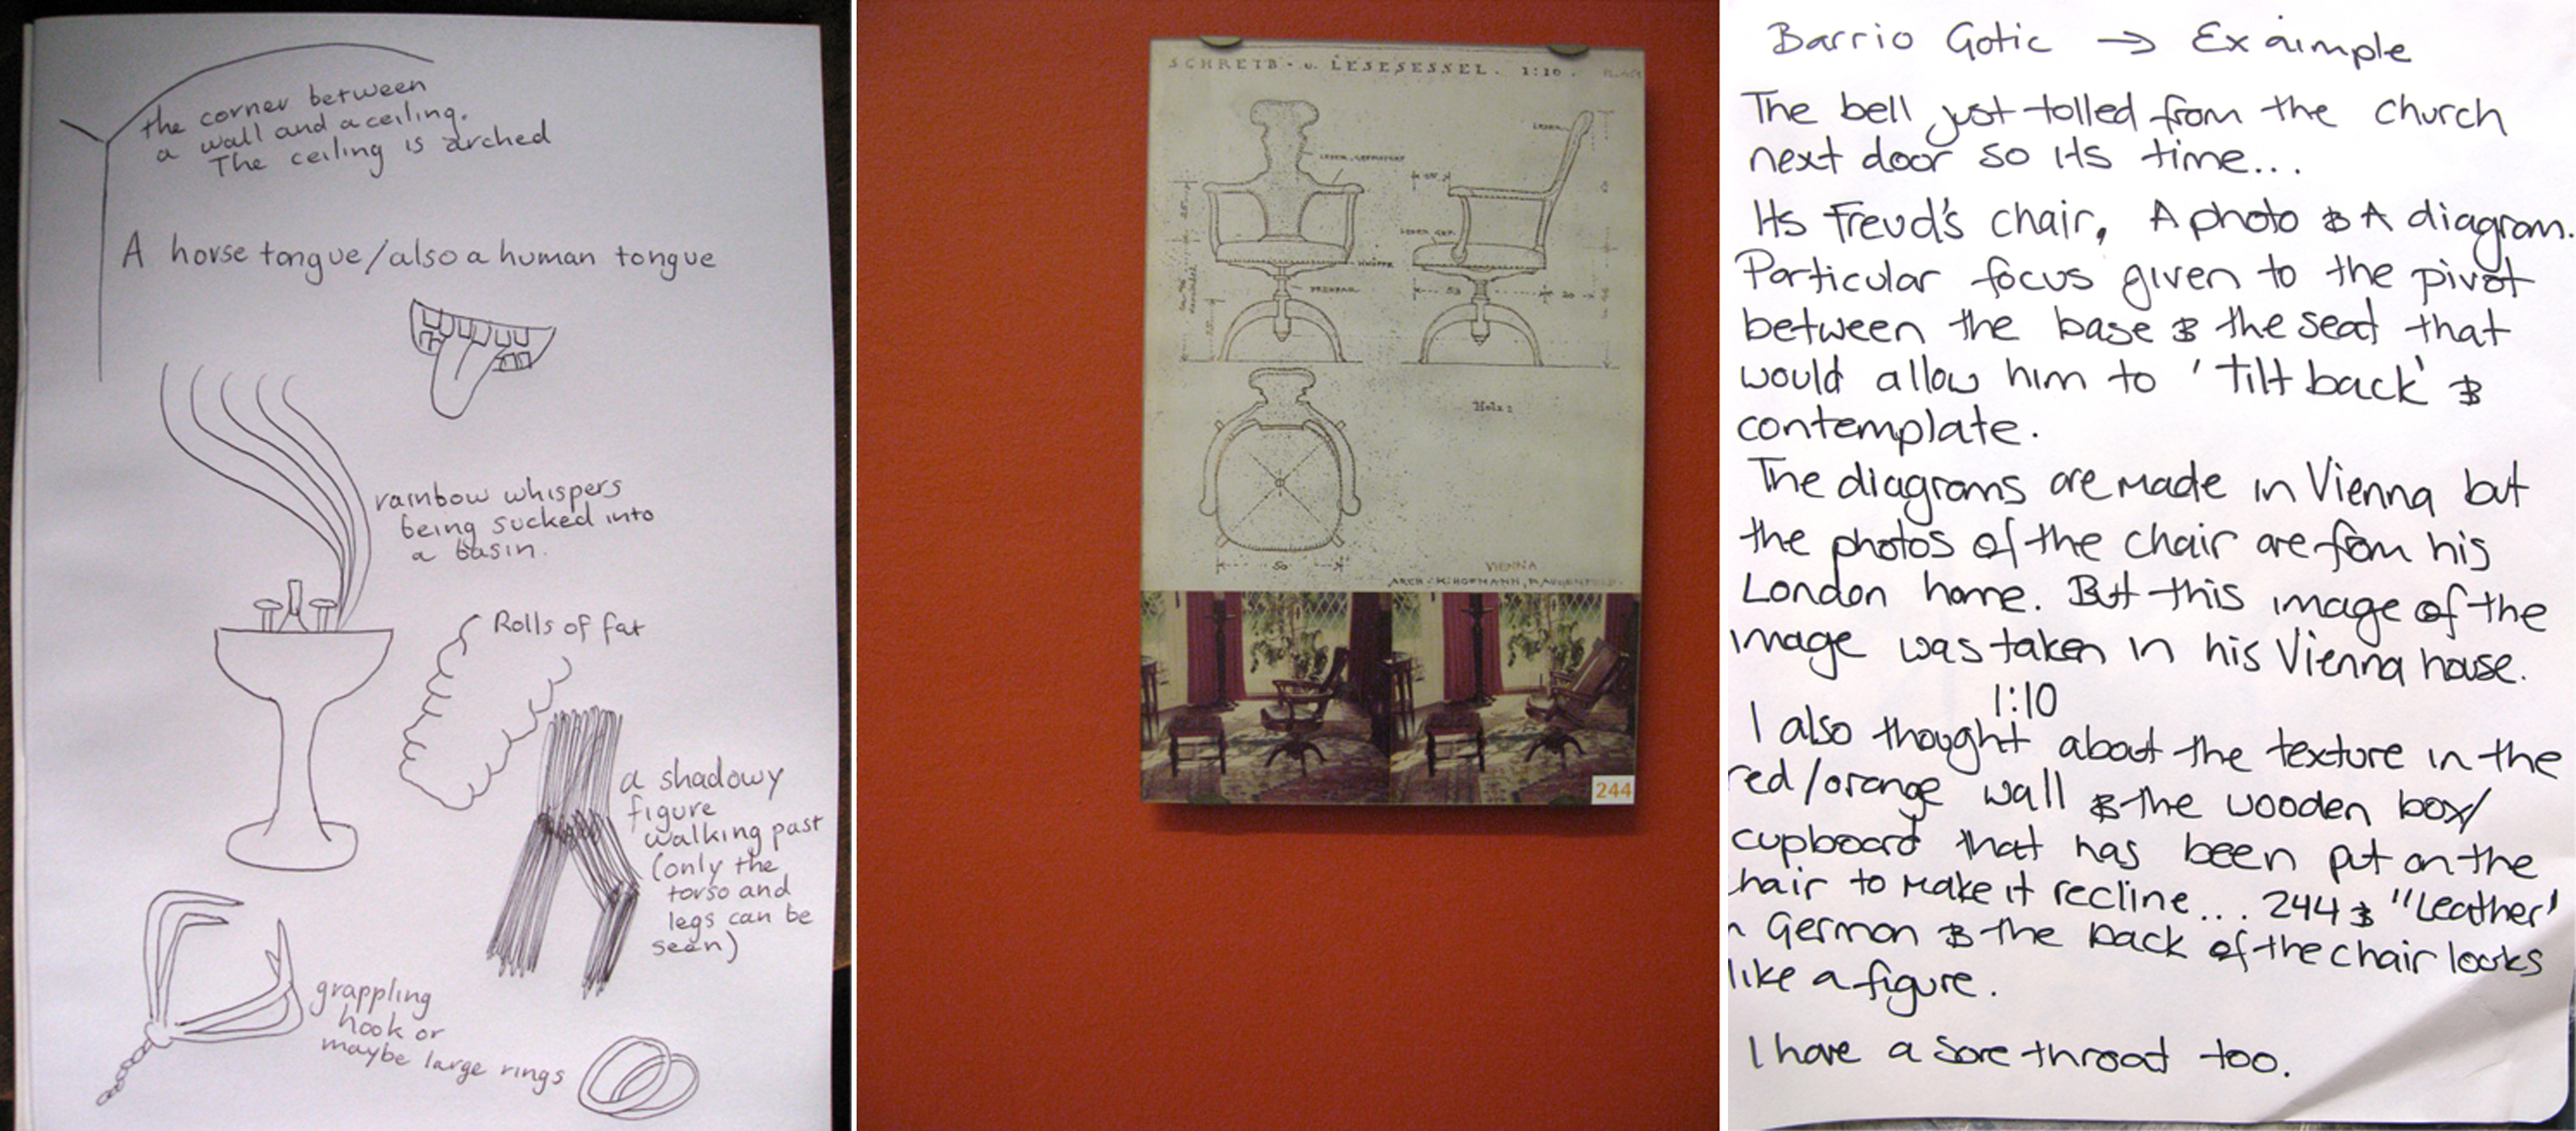 the corner between
a wall and a ceiling.
The ceiling is arched
A horse tongue/also a human tongue
rainbow whispers
being sucked into
a basin.
Rolls of fat
a shadowy
figure
walking past
(only the
torso and
legs can be
seen)
grappling
hook or
maybe large rings
SCHREIB- u. LESESESSEL. 1:10.
LEDER
LEDER GEPOLSTERT
LEDER GEP.
KNÖPFE
50
Holz:
50
VIENNA
ARCH. K. HOFMANN, F. AUGENFELD.
244
Barrio Gotic → Exaimple
The bell just tolled from the church
next door so its time...
Its Freud's chair, A photo & A diagram.
Particular focus given to the pivot
between the base & the seat that
would allow him to 'tilt back' &
contemplate.
The diagrams are made in Vienna but
the photos of the chair are from his
London home. But this image of the
image was taken in his Vienna house.
1:10
I also thought about the texture in the
red/orange wall & the wooden box/
cupboard that has been put on the
hair to make it recline... 244 & "Leather"
n German & the back of the chair looks
like a figure.
I have a sore throat too.